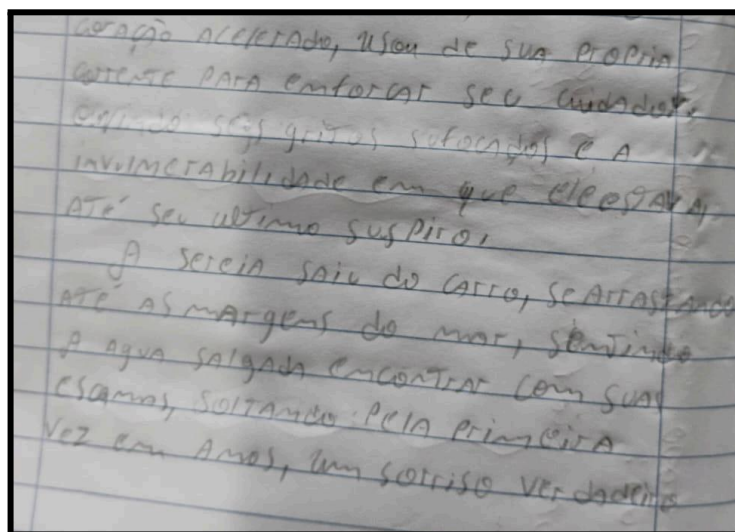 coração acelerado, usou de sua propria
corrente para enforcar seu cuidador,
ouvindo seus gritos sufocados e a
invulnerabilidade em que ele estava,
até seu ultimo suspiro,
A sereia saiu do carro, se arrastando
até as margens do mar, sentindo
a agua salgada encontrar com suas
escamas, soltando pela primeira
vez em anos, um sorriso verdadeiro